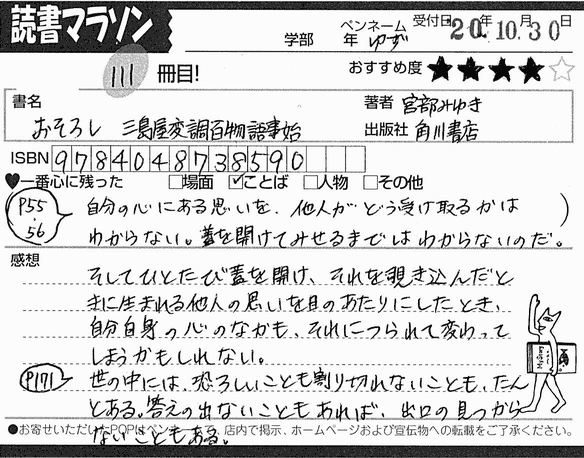 読書マラソン
学部 年 ペンネーム ゆず 受付日 20年10月30日
111 冊目!
おすすめ度 ★★★★☆
書名 おそろし 三島屋変調百物語事始
著者 宮部みゆき
出版社 角川書店
ISBN 9784048738590
♥一番心に残った □場面 ☑ことば □人物 □その他
P55・56 自分の心にある思いを、他人がどう受け取るかは
わからない。蓋を開けてみせるまではわからないのだ。
感想
そしてひとたび蓋を開け、それを覗き込んだと
きに生まれる他人の思いを目のあたりにしたとき、
自分自身の心のなかも、それにつられて変わって
しまうかもしれない。
P171 世の中には、恐ろしいことも割り切れないことも、たん
とある。答えの出ないこともあれば、出口の見つから
ないこともある。
●お寄せいただいたPOPはペンネームで、店内で掲示、ホームページおよび宣伝物への転載をご了承ください。